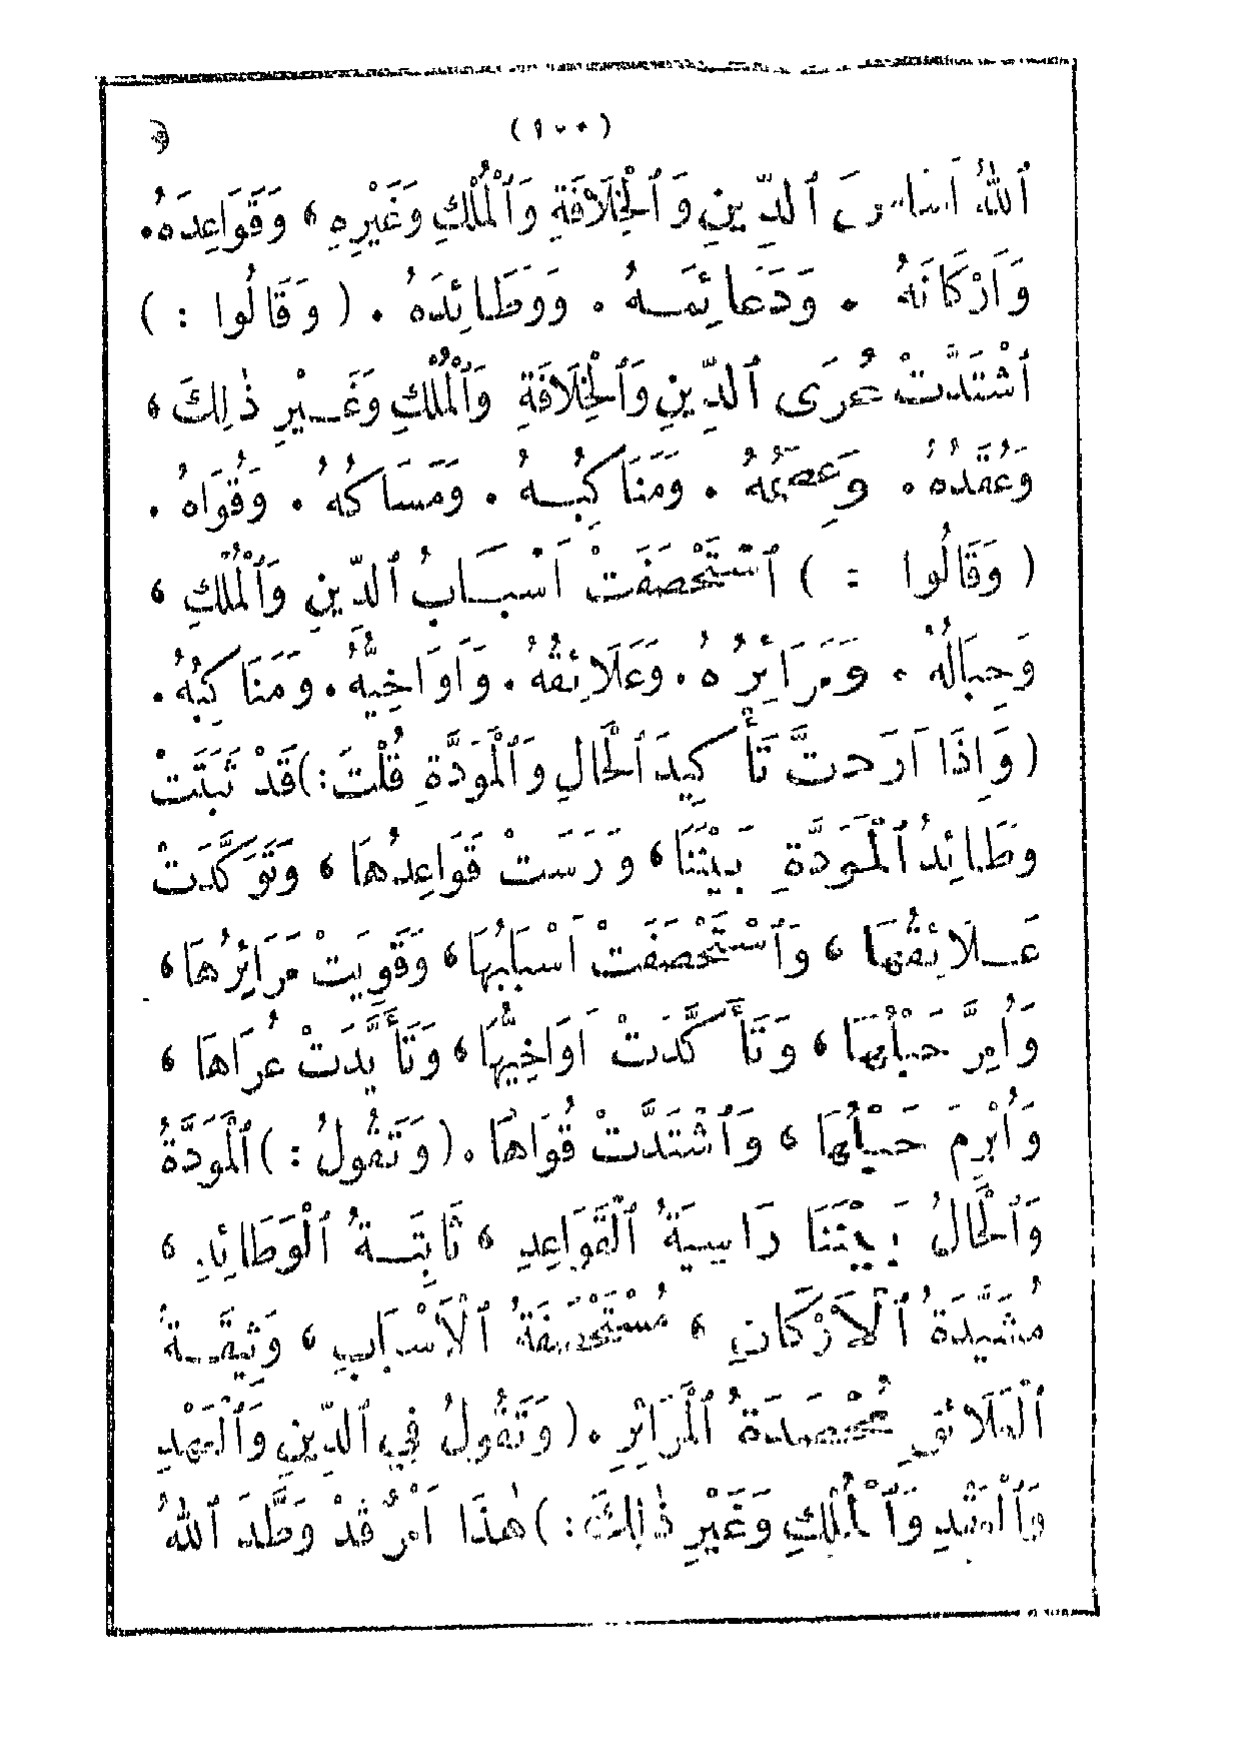 (١٠٠)
ٱللهُ اَسَاسَ ٱلدِّينِ وَٱلْخِلَافَةِ وَٱلْمُلْكِ وَغَيْرِهِ ، وَقَوَاعِدَهُ .
وَاَرْكَانَهُ . وَدَعَائِمَهُ . وَوَطَائِدَهُ . ( وَقَالُوا : )
ٱشْتَدَّتْ عُرَى ٱلدِّينِ وَٱلْخِلَافَةِ وَٱلْمُلْكِ وَغَيْرِ ذٰلِكَ ،
وَعُقَدُهُ . وَعِصَمُهُ . وَمَنَاكِبُهُ . وَمَسَاكُهُ . وَقُوَاهُ .
( وَقَالُوا : ) ٱسْتَحْصَفَتْ اَسْبَابُ ٱلدِّينِ وَٱلْمُلْكِ ،
وَحِبَالُهُ . وَمَرَائِرُهُ . وَعَلَائِقُهُ . وَاَوَاخِيُّهُ . وَمَنَاكِبُهُ .
( وَاِذَا اَرَدتَّ تَأْكِيدَ ٱلْحَالِ وَٱلْمَوَدَّةِ قُلْتَ : ) قَدْ ثَبَتَتْ
وَطَائِدُ ٱلْمَوَدَّةِ بَيْنَنَا ، وَرَسَتْ قَوَاعِدُهَا ، وَتَوَكَّدَتْ
عَلَائِقُهَا ، وَٱسْتَحْصَفَتْ اَسْبَابُهَا ، وَقَوِيَتْ مَرَائِرُهَا ،
وَاُمِرَّ حَبْلُهَا ، وَتَأَكَّدَتْ اَوَاخِيُّهَا ، وَتَأَيَّدَتْ عُرَاهَا ،
وَاُبْرِمَ حَبْلُهَا ، وَٱشْتَدَّتْ قُوَاهَا . ( وَتَقُولُ : ) ٱلْمَوَدَّةُ
وَٱلْحَالُ بَيْنَنَا رَاسِيَةُ ٱلْقَوَاعِدِ ، ثَابِتَةُ ٱلْوَطَائِدِ ،
مُشَيَّدَةُ ٱلْاَرْكَانِ ، مُسْتَحْصِفَةُ ٱلْاَسْبَابِ ، وَثِيقَةُ
ٱلْعَلَائِقِ مُحْصَدَةُ ٱلْمَرَائِرِ . ( وَتَقُولُ فِي ٱلدِّينِ وَٱلْعَهْدِ
وَٱلْعَقْدِ وَٱلْمُلْكِ وَغَيْرِ ذٰلِكَ : ) هٰذَا اَمْرٌ قَدْ وَطَّدَ ٱللهُ